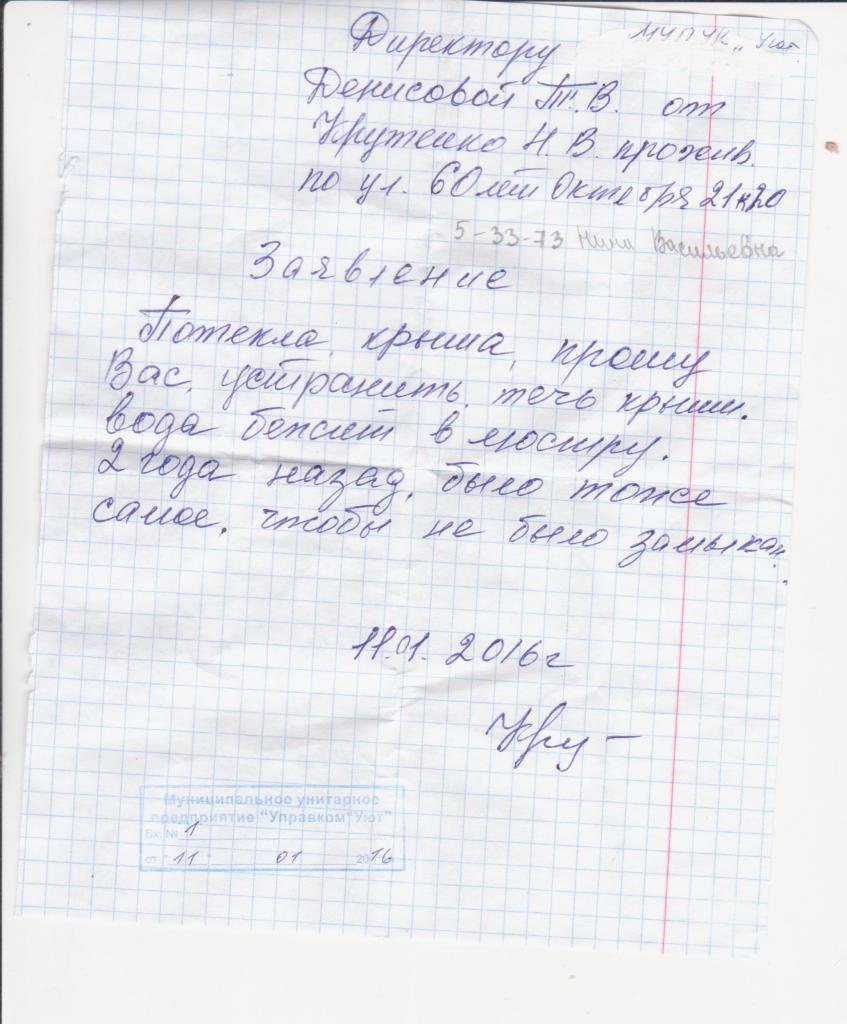 Директору МУП УК „Уют"
Денисовой Т.В. от
Крутенко Н.В. прожив.
по ул. 60 лет Октября 21 к 20
5-33-73 Нина Васильевна
Заявление
Потекла крыша, прошу
Вас, устранить, течь крыши.
вода бежит в люстру.
2 года назад, было тоже
самое, чтобы не было замыкан.
11.01.2016г
Кру-
Муниципальное унитарное
предприятие "Управком"Уют"
Вх. № 1
от "11" 01 2016